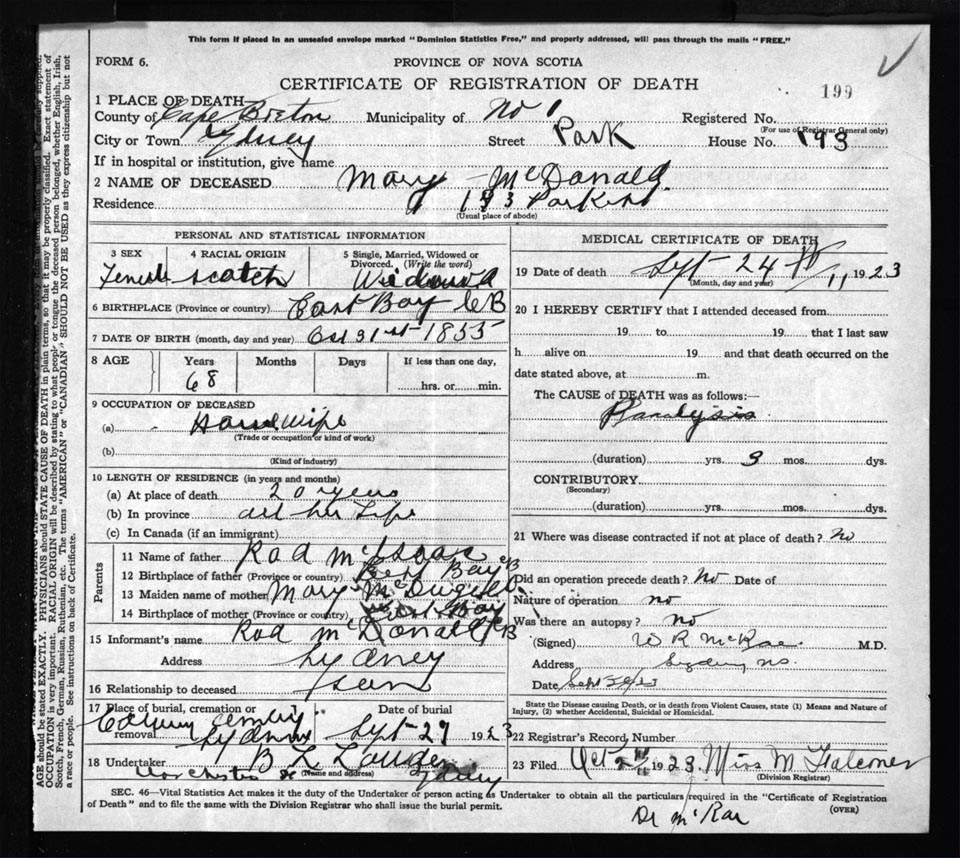 This form if placed in an unsealed envelope marked "Dominion Statistics Free," and properly addressed, will pass through the mails "FREE."
FORM 6.
PROVINCE OF NOVA SCOTIA
CERTIFICATE OF REGISTRATION OF DEATH
199
1 PLACE OF DEATH
County of Cape Breton Municipality of No 1 Registered No.
(For use of Registrar General only)
City or Town Sydney Street Park House No. 193
If in hospital or institution, give name
2 NAME OF DECEASED Mary McDonald
Residence 193 Park st
(Usual place of abode)
PERSONAL AND STATISTICAL INFORMATION
3 SEX 4 RACIAL ORIGIN 5 Single, Married, Widowed or Divorced. (Write the word)
Female Scotch Widowed
6 BIRTHPLACE (Province or country) East Bay CB
7 DATE OF BIRTH (month, day and year) Oct 31st 1855
8 AGE Years Months Days If less than one day,
68 hrs. or min.
9 OCCUPATION OF DECEASED
(a) House wife
(Trade or occupation or kind of work)
(b)
(Kind of industry)
10 LENGTH OF RESIDENCE (in years and months)
(a) At place of death 20 years
(b) In province all her Life
(c) In Canada (if an immigrant)
Parents
11 Name of father Rod McIsaac
12 Birthplace of father (Province or country) East Bay CB
13 Maiden name of mother Mary
14 Birthplace of mother (Province or country) Bay CB
15 Informant's name Rod McDonald
Address Sydney
16 Relationship to deceased son
17 Place of burial, cremation or removal Date of burial
Sydney Sept 27 1923
18 Undertaker B L
(Name and address)
Dorchester St Sydney
MEDICAL CERTIFICATE OF DEATH
19 Date of death Sept 24th 1923
(Month, day and year)
20 I HEREBY CERTIFY that I attended deceased from
19 to 19 that I last saw
h alive on 19 and that death occurred on the
date stated above, at m.
The CAUSE of DEATH was as follows:—
Paralysis
(duration) yrs. 3 mos. dys.
CONTRIBUTORY
(Secondary)
(duration) yrs. mos. dys.
21 Where was disease contracted if not at place of death? No
Did an operation precede death? No Date of
Nature of operation no
Was there an autopsy? no
(Signed) W R McRae M.D.
Address Sydney NS.
Date Sept
State the Disease causing Death, or in death from Violent Causes, state (1) Means and Nature of Injury, (2) whether Accidental, Suicidal or Homicidal.
22 Registrar's Record Number
23 Filed Oct 1923 Miss M Falconer
(Division Registrar)
SEC. 46—Vital Statistics Act makes it the duty of the Undertaker or person acting as Undertaker to obtain all the particulars required in the "Certificate of Registration
of Death" and to file the same with the Division Registrar who shall issue the burial permit.
(OVER)
Dr McRae
AGE should be stated EXACTLY. PHYSICIANS should STATE CAUSE OF DEATH in plain terms, so that it may be properly classified. Exact statement of
OCCUPATION is very important. RACIAL ORIGIN will be described by stating to what people or tongue the deceased person belonged, whether English, Irish,
Scotch, French, German, Russian, Ruthenian, etc. The terms "AMERICAN" or "CANADIAN" SHOULD NOT BE USED as they express citizenship but not
a race or people. See instructions on back of Certificate.